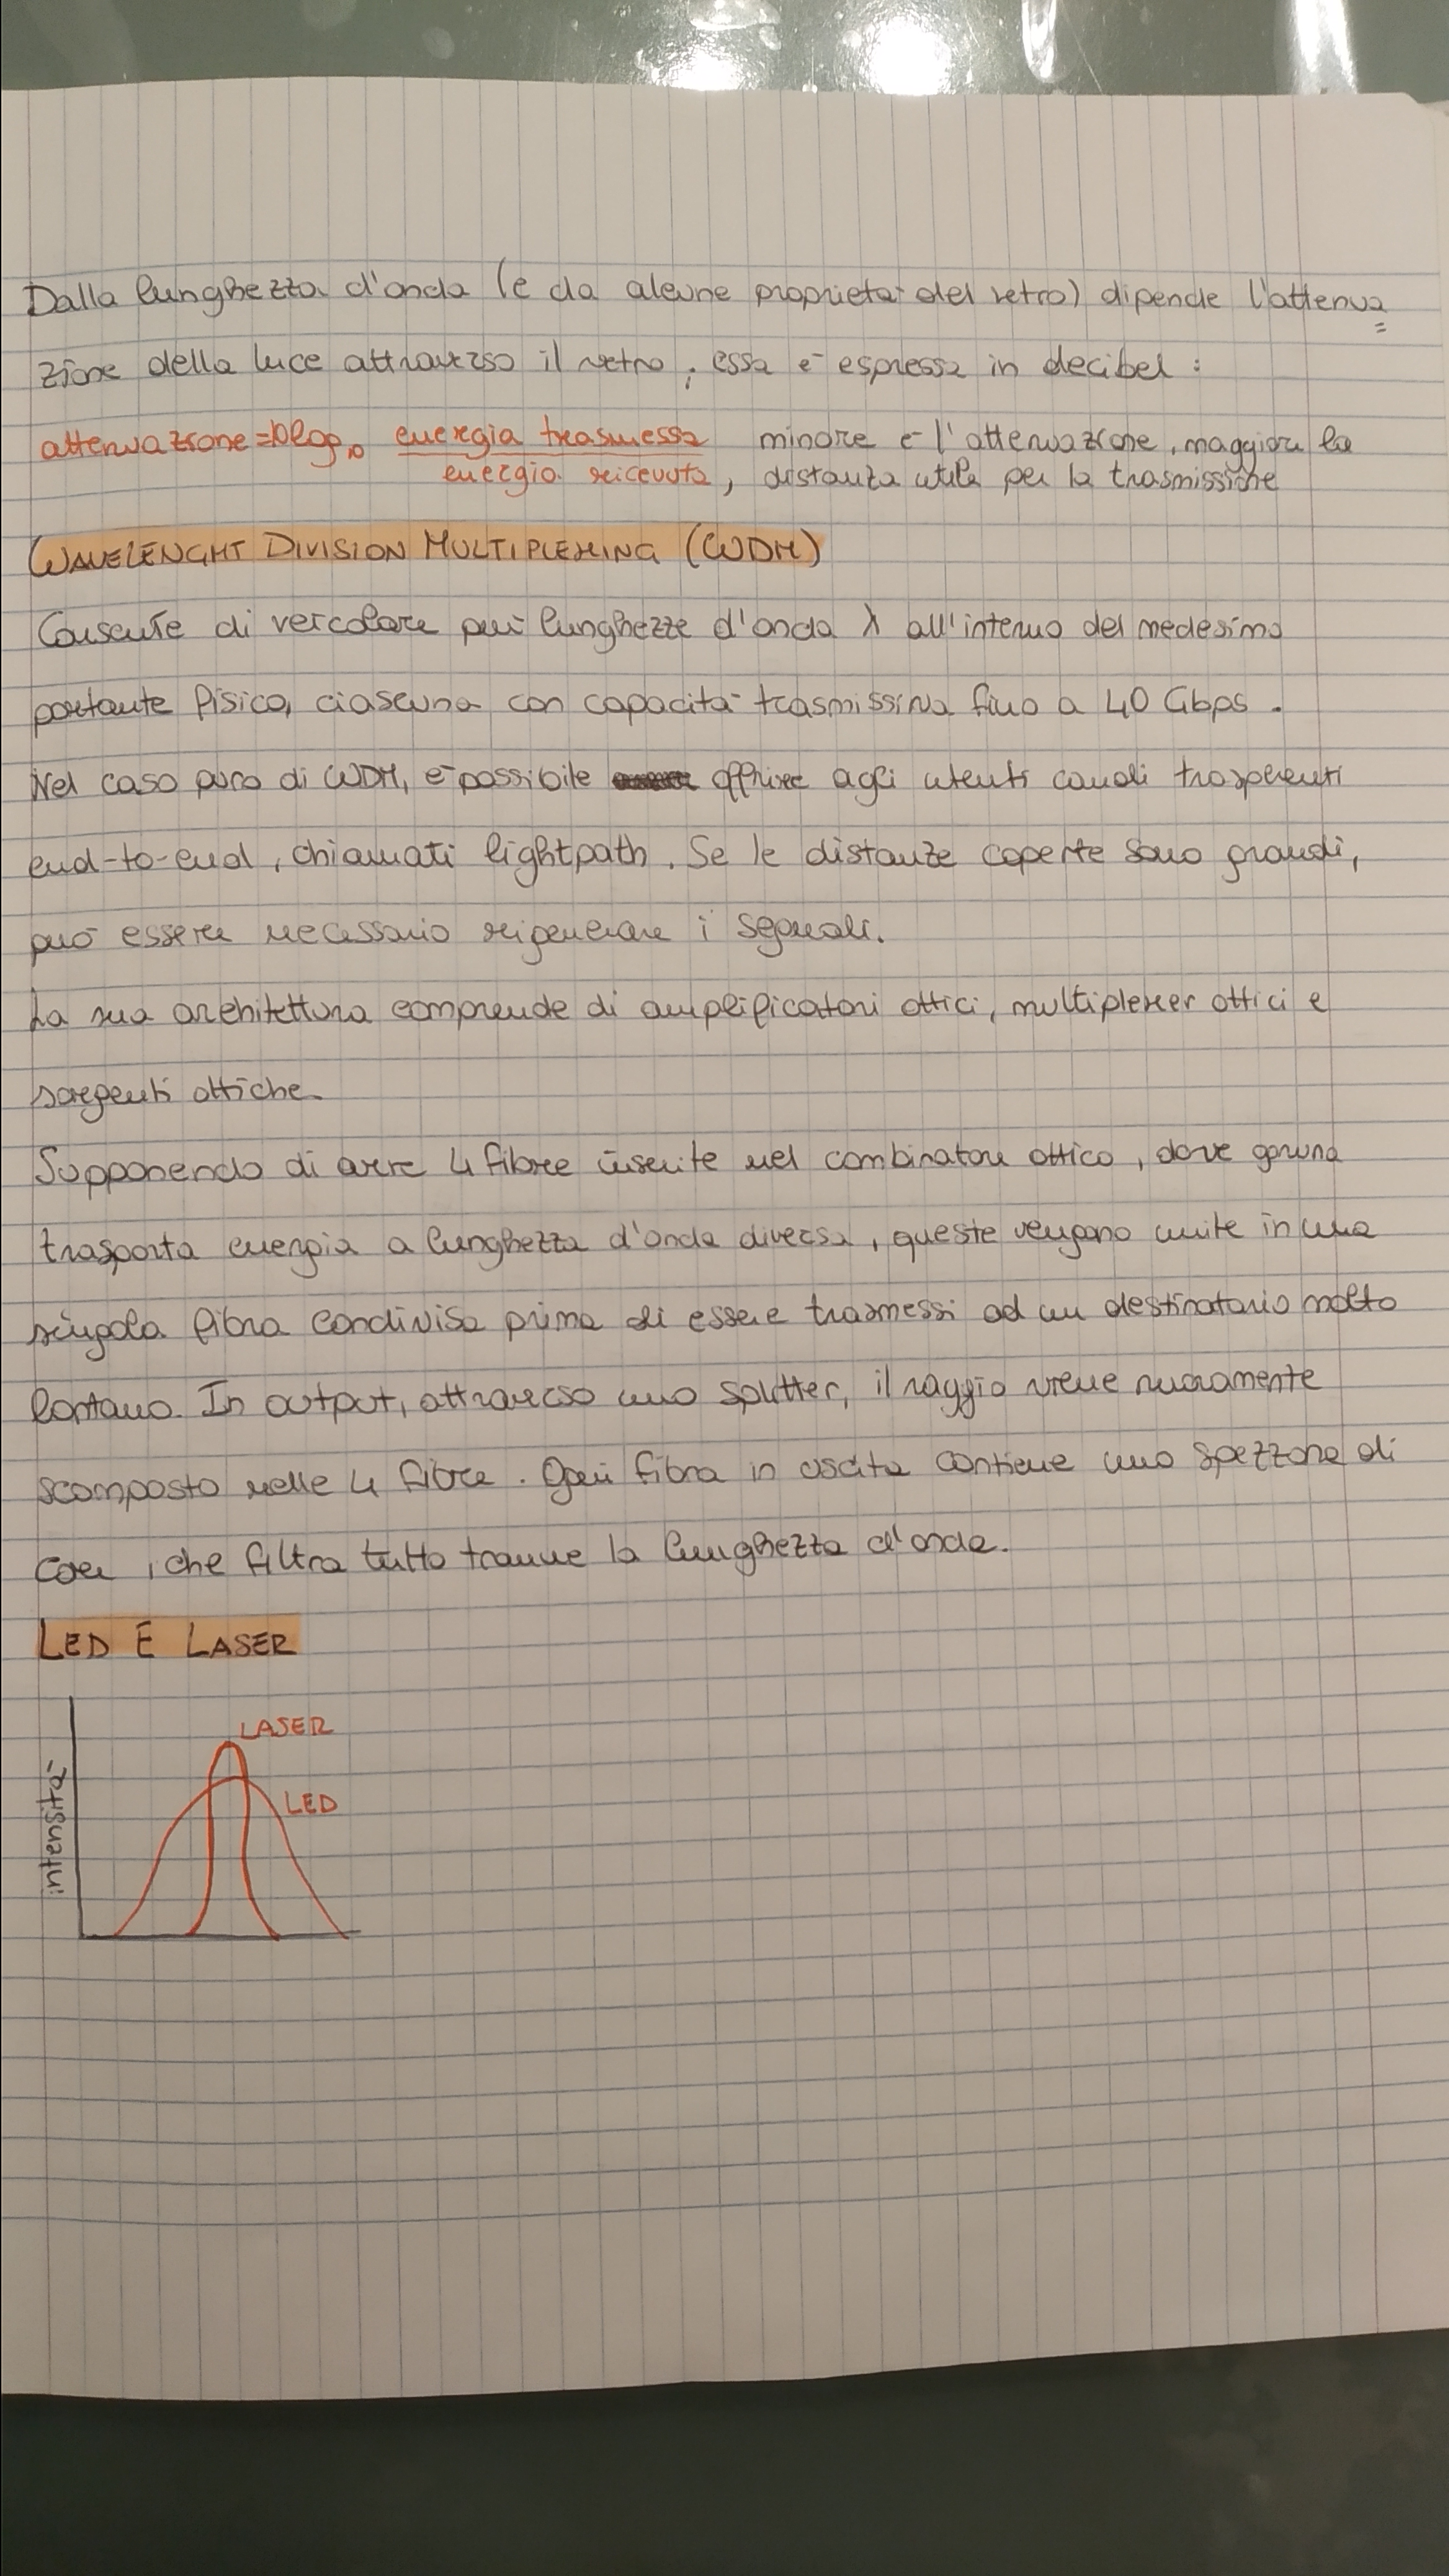 Dalla lunghezza d'onda (e da alcune proprietà del vetro) dipende l'attenua
zione della luce attraverso il vetro; essa è espressa in decibel:
attenuazione=10log₁₀ energia trasmessa minore è l'attenuazione, maggiore la
energia ricevuta, distanza utile per la trasmissione
WAVELENGHT DIVISION MULTIPLEXING (WDM)
Consente di veicolare più lunghezze d'onda λ all'interno del medesimo
portante fisico, ciascuna con capacità trasmissiva fino a 40 Gbps.
Nel caso puro di WDM, è possibile offrire agli utenti canali trasparenti
end-to-end, chiamati lightpath. Se le distanze coperte sono grandi,
può essere necessario rigenerare i segnali.
La sua architettura comprende di amplificatori ottici, multiplexer ottici e
sorgenti ottiche.
Supponendo di avere 4 fibre inserite nel combinatore ottico, dove
trasporta energia a lunghezza d'onda diversa, queste vengono unite in una
singola fibra condivisa prima di essere trasmessi ad un destinatario molto
lontano. In output, attraverso uno splitter, il raggio viene nuovamente
scomposto nelle 4 fibre. Ogni fibra in uscita contiene uno spezzone di
core, che filtra tutto tranne la lunghezza d'onda.
LED E LASER
LASER
LED
intensità